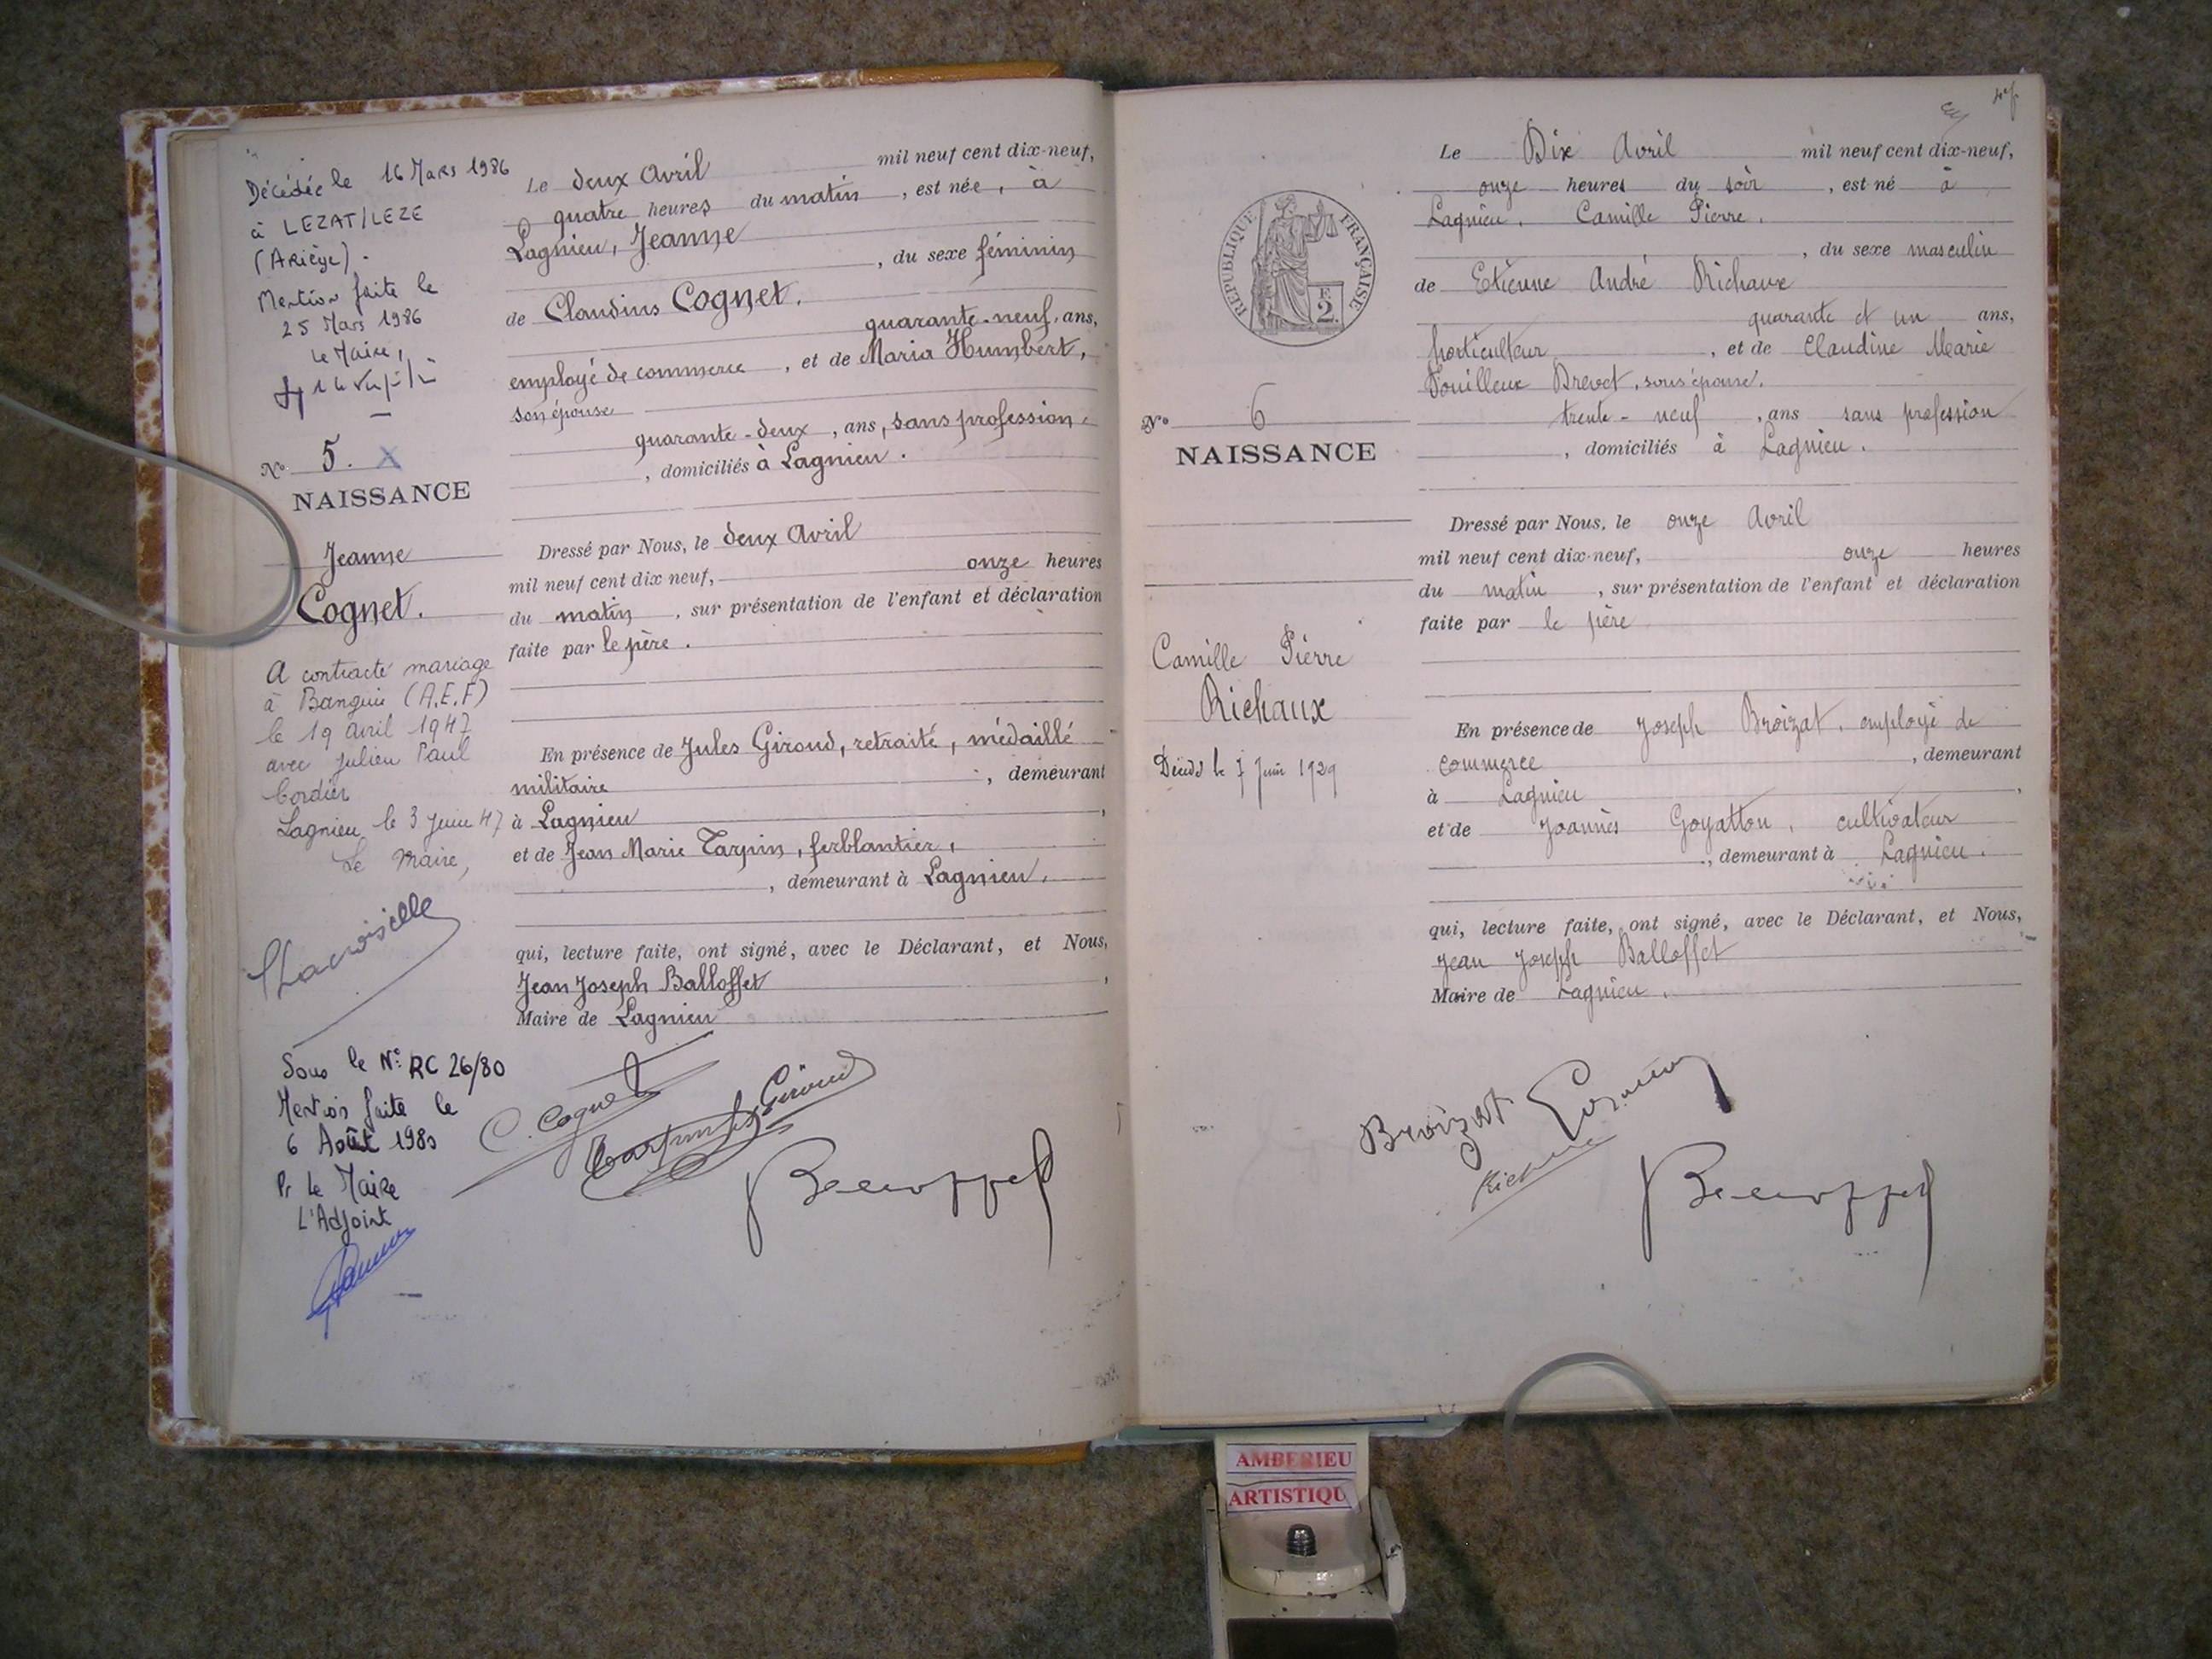 Décédée le 16 Mars 1986
à LEZAT/LEZE
(Ariège).
Mention faite le
25 Mars 1986
Le Maire,
No 5. X
NAISSANCE
Jeanne
Cognet.
A contracté mariage
à Bangui (A.E.F)
le 19 avril 1947
avec Julien Paul
Cordier
Lagnieu le 3 Juin 47
Le Maire,
Lacroiselle
Sous le N° RC 26/80
Mention faite le
6 Août 1980
Pr Le Maire
L'Adjoint
Le deux Avril mil neuf cent dix-neuf,
quatre heures du matin, est née, à
Lagnieu, Jeanne
, du sexe féminin
de Claudius Cognet.
quarante-neuf, ans,
employé de commerce, et de Maria Humbert,
son épouse
quarante-deux, ans, sans profession.
, domiciliés à Lagnieu.
Dressé par Nous, le deux Avril
mil neuf cent dix neuf, onze heures
du matin, sur présentation de l'enfant et déclaration
faite par le père.
En présence de Jules Giroud, retraité, médaillé
militaire, demeurant
à Lagnieu,
et de Jean Marie Tarpin, ferblantier,
, demeurant à Lagnieu.
qui, lecture faite, ont signé, avec le Déclarant, et Nous,
Jean Joseph Balloffet,
Maire de Lagnieu
C. Cognet
Giroud
RÉPUBLIQUE FRANÇAISE
F.
2.
No 6
NAISSANCE
Camille Pierre
Richaux
Décédé le 7 Juin 1929
Le Dix Avril mil neuf cent dix-neuf,
onze heures du soir, est né à
Lagnieu. Camille Pierre.
, du sexe masculin
de Etienne André Richaux
quarante et un ans,
horticulteur, et de Claudine Marie
Fouilleux Drevet, sous épouse.
trente-neuf, ans sans profession
, domiciliés à Lagnieu.
Dressé par Nous, le onze Avril
mil neuf cent dix-neuf, onze heures
du matin, sur présentation de l'enfant et déclaration
faite par le père
En présence de Joseph Broizat, employé de
commerce, demeurant
à Lagnieu,
et de Joannès Goyatton, cultivateur
, demeurant à Lagnieu.
qui, lecture faite, ont signé, avec le Déclarant, et Nous,
Jean Joseph Balloffet
Maire de Lagnieu.
Broizat
Richaux
AMBERIEU
ARTISTIQU